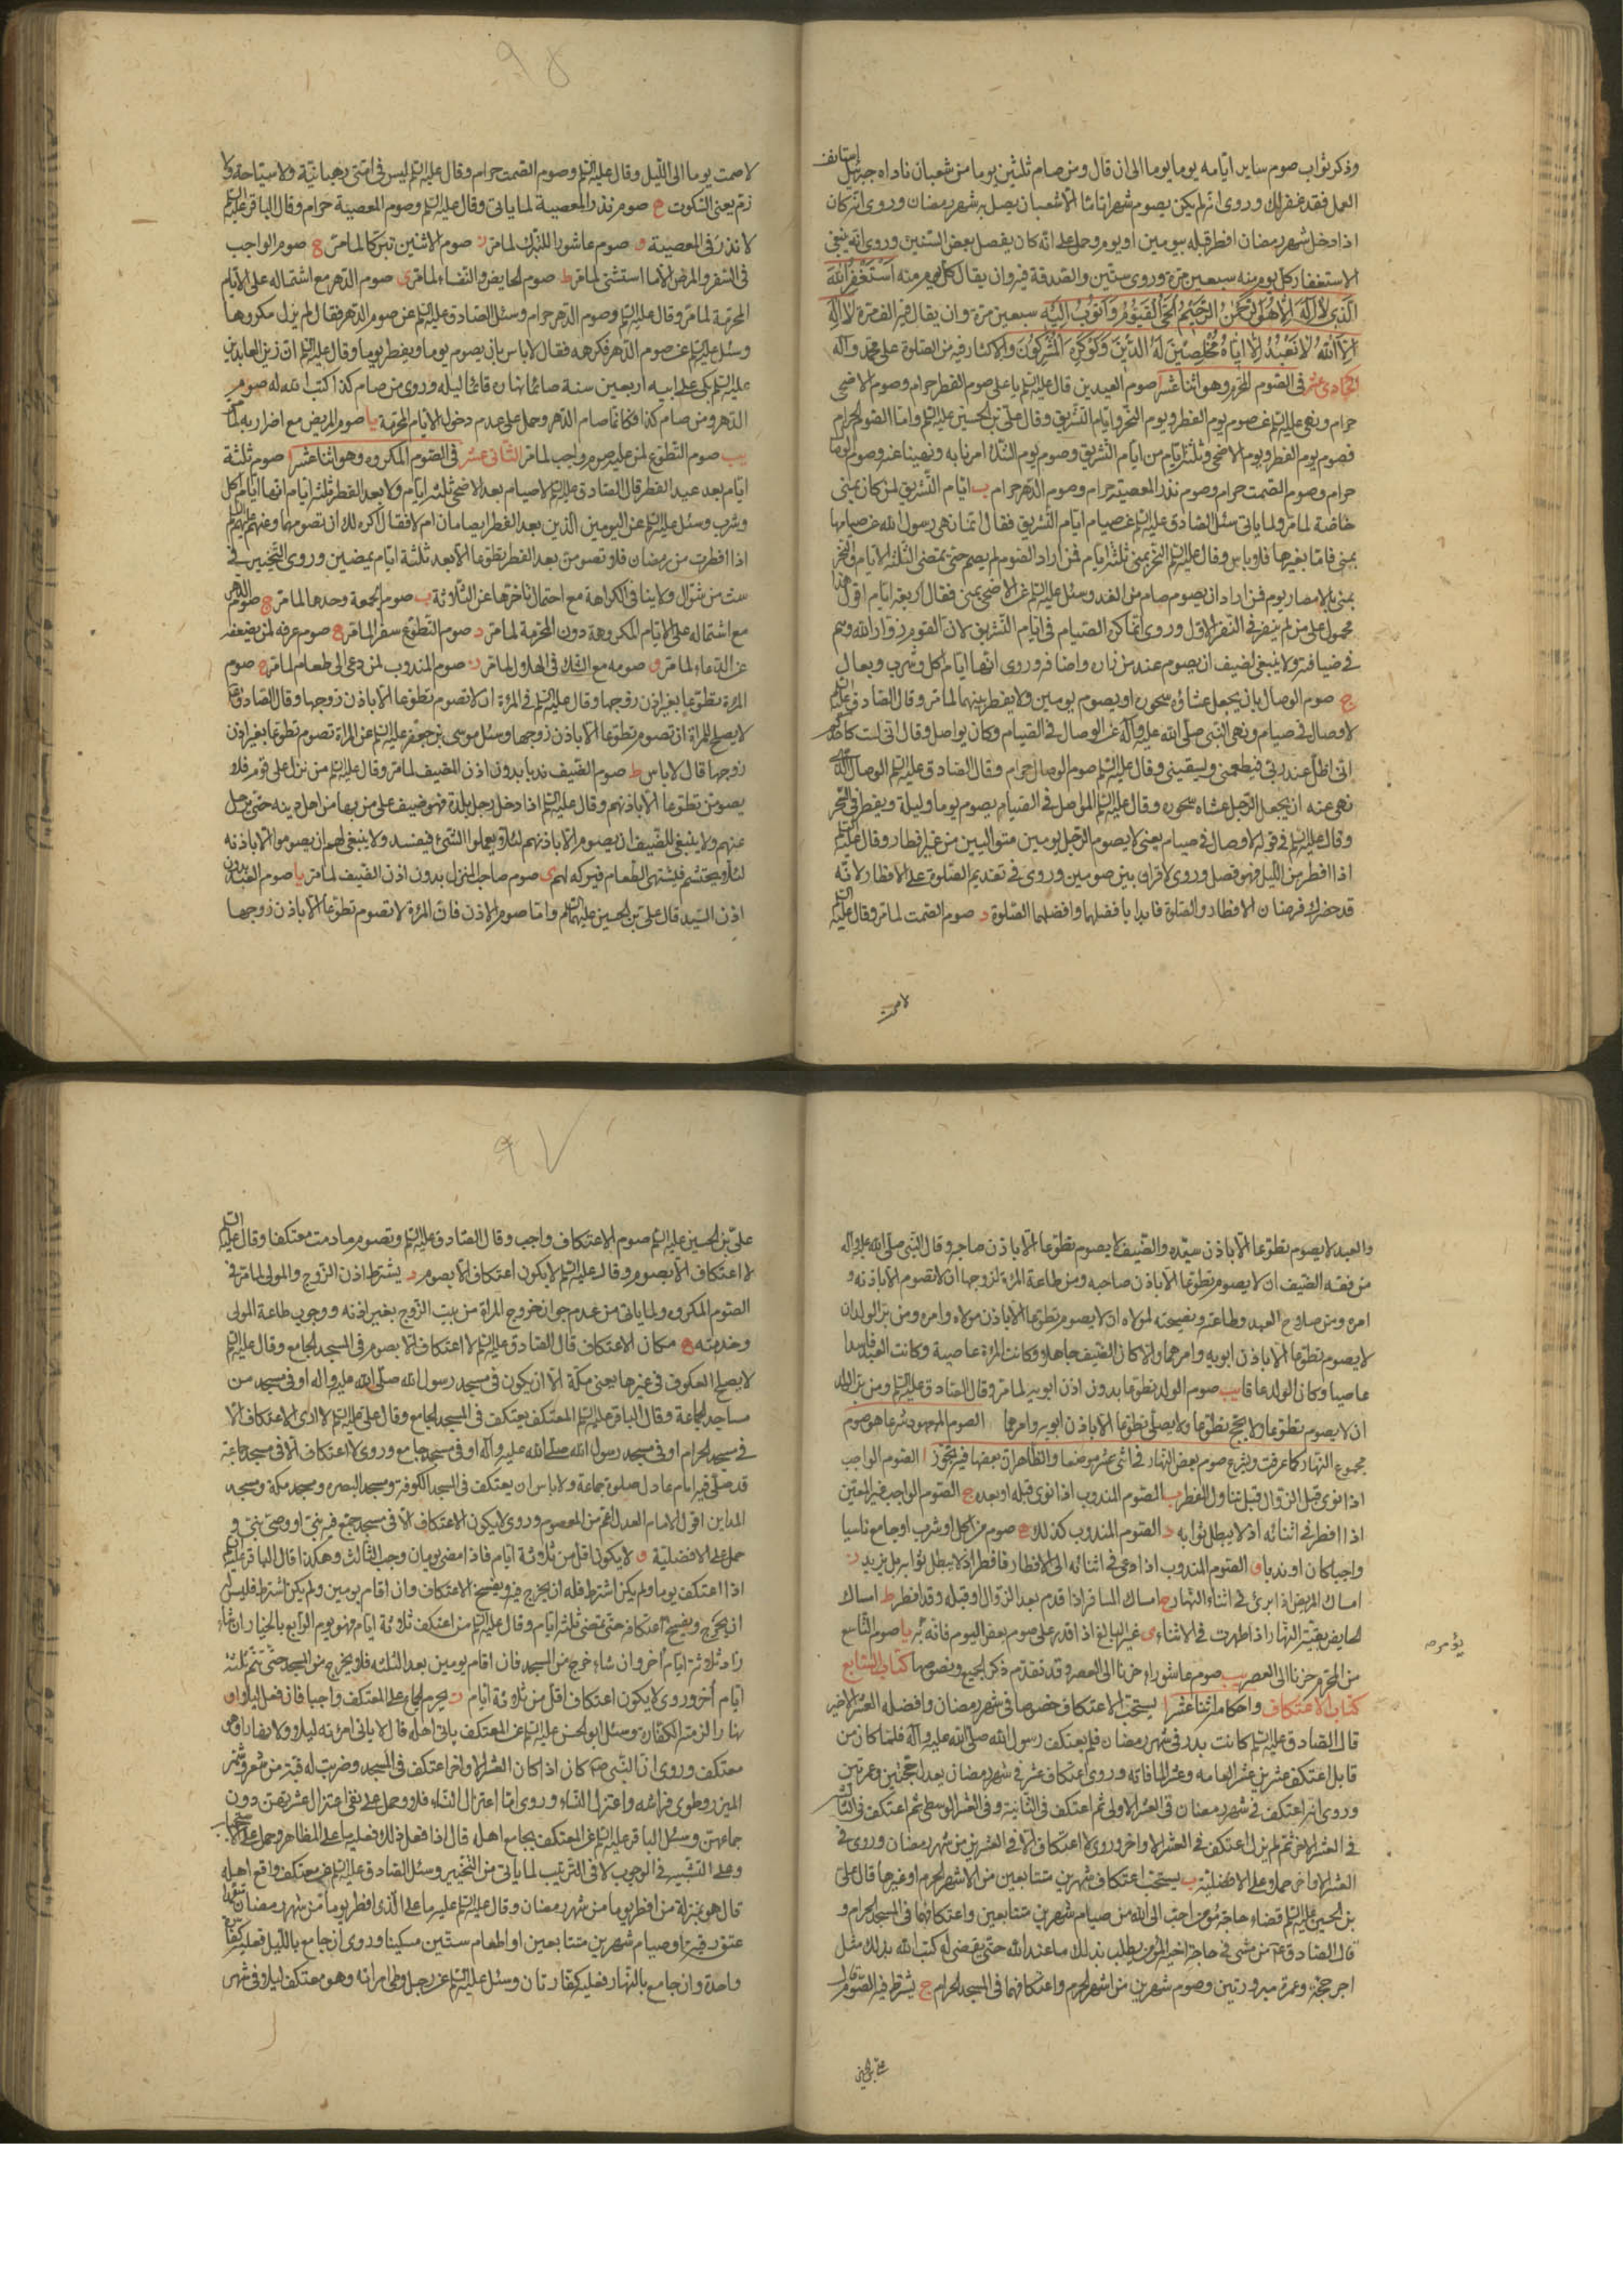 وذكر ثواب صوم ساير ايامه يوما يوما الى ان قال ومن صام ثلثين يوما من شعبان ناداه جبرئيل استانف
العمل فقد غفر لك وروى انه لم يكن يصوم شهرا تاما الا شعبان يصل به شهر رمضان وروى انه كان
اذا دخل شهر رمضان افطر قبله بيومين او يوم وحمل على انه كان يفصل بعض السنين وروى انه ينبغي
الاستغفار كل يوم منه سبعين مرة وروى ستين والصدقة فيه وان يقال كل يوم منه اَسْتَغْفِرُ اللهَ
الَّذِي لَا اِلٰهَ اِلَّا هُوَ الرَّحْمٰنُ الرَّحِيمُ الْحَيُّ الْقَيُّومُ وَاَتُوبُ اِلَيْهِ سبعين مرة وان يقال فيه الف مرة لا اِلٰهَ
اِلَّا اللهُ لَا نَعْبُدُ اِلَّا اِيَّاهُ مُخْلِصِينَ لَهُ الدِّينَ وَلَوْ كَرِهَ الْمُشْرِكُونَ والاكثار فيه من الصلوة على محمد وآله
الحادى عشر فى الصوم المحرم وهو اثنا عشر ا صوم العيدين قال عليه السلم يا على صوم الفطر حرام وصوم الاضحى
حرام ونهى عليه السلم عن صوم يوم الفطر ويوم النحر وايام التشريق وقال على بن الحسين عليه السلم واما الصوم الحرام
فصوم يوم الفطر ويوم الاضحى وثلثة ايام من ايام التشريق وصوم يوم الشك امرنا به ونهينا عنه وصوم الوصال
حرام وصوم الصمت حرام وصوم نذر المعصية حرام وصوم الدهر حرام ب ايام التشريق لمن كان بمنى
خاصة لما مر ولما ياتى سئل الصادق عليه السلم عن صيام ايام التشريق فقال انما نهى رسول الله عن صيامها
بمنى فاما بغيرها فلا باس وقال عليه السلم النحر بمنى ثلثة ايام فمن اراد الصوم لم يصم حتى تمضى الثلثة الايام والنحر
بمنى بالامصار يوم فمن اراد ان يصوم صام من الغد وسئل عليه السلم عن الاضحى بمنى فقال اربعة ايام اقول هذا
محمول على من لم ينفر فى النفر الاول وروى انما كره الصيام فى ايام التشريق لان القوم زوار الله وهم
فى ضيافته ولا ينبغى لضيف ان يصوم عند من زاره واضافه وروى انها ايام اكل وشرب وبعال
ج صوم الوصال بان يجعل عشاؤه سحوره او يصوم يومين ولا يفطر بينهما لما مر وقال الصادق عليه السلم
لا وصال فى صيام ونهى النبى صلى الله عليه وآله عن الوصال فى الصيام وكان يواصل وقال انى لست كاحدكم
انى اظل عند ربى فيطعمنى ويسقينى وقال عليه السلم صوم الوصال حرام وقال الصادق عليه السلم الوصال الذى
نهى عنه ان يجعل الرجل عشاه سحوره وقال عليه السلم المواصل فى الصيام يصوم يوما وليلة ويفطر فى السحر
وقال عليه السلم فى قوله لا وصال فى صيام يعنى لا يصوم الرجل يومين متواليين من غير افطار وقال عليه السلم
اذا افطر من الليل فهو فصل وروى لا قران بين صومين وروى فى تقديم الصلوة على الافطار لانه
قد حضرك فرضان الافطار والصلوة فابدا بافضلهما وافضلهما الصلوة د صوم الصمت لما مر وقال عليه السلم
لا صمت
لا صمت يوما الى الليل وقال عليه السلم وصوم الصمت حرام وقال عليه السلم ليس فى امتى رهبانية ولا سياحة ولا
زم يعنى السكوت ه صوم نذر المعصية لما ياتى وقال عليه السلم وصوم المعصية حرام وقال الباقر عليه السلم
لا نذر فى المعصية و صوم عاشورا للتبرك لما مر ز صوم الاثنين تبركا لما مر ح صوم الواجب
فى السفر والمرض الا ما استثنى لما مر ط صوم الحايض والنفساء لما مر ى صوم الدهر مع اشتماله على الايام
المحرمة لما مر وقال عليه السلم وصوم الدهر حرام وسئل الصادق عليه السلم عن صوم الدهر فقال لم يزل مكروها
وسئل عليه السلم عن صوم الدهر فكرهه فقال لا باس بان يصوم يوما ويفطر يوما وقال عليه السلم ان زين العابدين
عليه السلم بكى على ابيه اربعين سنة صائما نهاره قائما ليله وروى من صام كذا كتب الله له صوم
الدهر ومن صام كذا فكانما صام الدهر وحمل على عدم دخول الايام المحرمة يا صوم المريض مع اضراره به لما مر
يب صوم التطوع لمن عليه صوم واجب لما مر الثانى عشر فى الصوم المكروه وهو اثنا عشر ا صوم ثلثة
ايام بعد عيد الفطر قال الصادق عليه السلم لا صيام بعد الاضحى ثلثة ايام ولا بعد الفطر ثلثة ايام انها ايام اكل
وشرب وسئل عليه السلم عن اليومين الذين بعد الفطر ايصامان ام لا فقال اكره لك ان تصومها وعنهم عليهم السلم
اذا افطرت من رمضان فلا تصومن بعد الفطر تطوعا الا بعد ثلثة ايام يمضين وروى التخيير فى
ست من شوال ولا ينافى الكراهة مع احتمال تاخرها عن الثلاثة ب صوم الجمعة وحدها لما مر ج صوم الدهر
مع اشتماله على الايام المكروهة دون المحرمة لما مر د صوم التطوع سفرا لما مر ه صوم عرفه لمن يضعفه
عن الدعاء لما مر و صومه مع الشك فى الهلال لما مر ز صوم المندوب لمن دعى الى طعام لما مر ح صوم
المراة تطوعا بغير اذن زوجها وقال عليه السلم فى المراة ان لا تصوم تطوعا الا باذن زوجها وقال الصادق عليه السلم
لا يصلح للمراة ان تصوم تطوعا الا باذن زوجها وسئل موسى بن جعفر عليه السلم عن المراة تصوم تطوعا بغير اذن
زوجها قال لا باس ط صوم الضيف ندبا بدون اذن المضيف لما مر وقال عليه السلم من نزل على قوم فلا
يصومن تطوعا الا باذنهم وقال عليه السلم اذا دخل رجل بلدة فهو ضيف على من بها من اهل دينه حتى يرحل
عنهم ولا ينبغى للضيف ان يصوم الا باذنهم لئلا يعملوا الشئ فيفسد ولا ينبغى لهم ان يصوموا الا باذنه
لئلا يحتشم فيشتهى الطعام فيتركه لهم ى صوم صاحب المنزل بدون اذن الضيف لما مر يا صوم العبد بدون
اذن السيد قال على بن الحسين عليهما السلم واما صوم الاذن فان المراة لا تصوم تطوعا الا باذن زوجها
والعبد لا يصوم تطوعا الا باذن سيده والضيف لا يصوم تطوعا الا باذن صاحبه وقال النبى صلى الله عليه وآله
من فقه الضيف ان لا يصوم تطوعا الا باذن صاحبه ومن طاعة المراة لزوجها ان لا تصوم الا باذنه و
امره ومن صلاح العبد وطاعته ونصيحته لمولاه ان لا يصوم تطوعا الا باذن مولاه وامره ومن بر الولد ان
لا يصوم تطوعا الا باذن ابويه وامرهما والا كان الضيف جاهلا وكانت المراة عاصية وكان العبد فاسدا
عاصيا وكان الولد عاقا يب صوم الولد تطوعا بدون اذن ابويه لما مر وقال الصادق عليه السلم ومن بر الولد
ان لا يصوم تطوعا ولا يحج تطوعا ولا يصلى تطوعا الا باذن ابويه وامرهما الصوم المعهود شرعا هو صوم
مجموع النهار كما عرفت ويشرع صوم بعض النهار فى اثنى عشر موضعا والظاهر ان بعضها فيه تجوز ا الصوم الواجب
اذا نوى قبل الزوال قبل تناول المفطر ب الصوم المندوب اذا نوى قبله او بعده ج الصوم الواجب غير المعين
اذا افطر فى اثنائه اذ لا يبطل ثوابه د الصوم المندوب كذلك ه صوم من اكل او شرب او جامع ناسيا
واجبا كان او ندبا و الصوم المندوب اذا دعى فى اثنائه الى الافطار فافطر اذ لا يبطل ثوابه بل يزيد ز
امساك المريض اذا برئ فى اثناء النهار ح امساك المسافر اذا قدم بعد الزوال او قبله وقد افطر ط امساك
الحايض بقية النهار اذا طهرت فى الاثناء ى غير البالغ اذا قدر على صوم بعض اليوم فانه يؤمر به يا صوم التاسع
يؤمر به
من المحرم حزنا الى العصر يب صوم عاشورا حزنا الى العصر وقد تقدم ذكر الجميع ونصوصها كتاب السابع
كتاب الاعتكاف واحكامه اثنا عشر ا يستحب الاعتكاف خصوصا فى شهر رمضان وافضله العشر الاخير
قال الصادق عليه السلم كانت بدر فى شهر رمضان فلم يعتكف رسول الله صلى الله عليه وآله فلما كان من
قابل اعتكف عشرين عشرا لعامه وعشرا لما فاته وروى اعتكاف عشر فى شهر رمضان يعدل حجتين وعمرتين
وروى انه اعتكف فى شهر رمضان فى العشر الاولى ثم اعتكف فى الثانية وفى العشر الوسطى ثم اعتكف فى الثالثة
فى العشر الاخر ثم لم يزل اعتكف فى العشر الاواخر وروى لا اعتكاف الا فى العشرين من شهر رمضان وروى فى
العشر الاواخر حملا على الافضلية ب يستحب اعتكاف شهرين متتابعين من الاشهر الحرم او غيرها قال على
بن الحسين عليه السلم قضاء حاجة مؤمن احب الى الله من صيام شهرين متتابعين واعتكافهما فى المسجد الحرام و
قال الصادق ع من مشى فى حاجة اخيه المؤمن يطلب بذلك ما عند الله حتى يقضى له كتب الله بذلك مثل
اجر حجة وعمرة مبرورتين وصوم شهرين من اشهر الحرم واعتكافهما فى المسجد الحرام ج يشترط فيه الصوم قال
على بن الحسين
على بن الحسين عليه السلم صوم الاعتكاف واجب وقال الصادق عليه السلم وتصوم ما دمت معتكفا وقال عليه السلم
لا اعتكاف الا بصوم وقال عليه السلم لا يكون اعتكاف الا بصوم د يشترط اذن الزوج والمولى لما مر فى
الصوم المكروه ولما ياتى من عدم جواز خروج المراة من بيت الزوج بغير اذنه ووجوب طاعة المولى
وخدمته ه مكان الاعتكاف قال الصادق عليه السلم لا اعتكاف الا بصوم فى المسجد الجامع وقال عليه السلم
لا يصلح العكوف فى غيرها يعنى مكة الا ان يكون فى مسجد رسول الله صلى الله عليه واله او فى مسجد من
مساجد الجماعة وقال الباقر عليه السلم المعتكف يعتكف فى المسجد الجامع وقال على عليه السلم لا ارى الاعتكاف الا
فى مسجد الحرام او فى مسجد رسول الله صلى الله عليه وآله او فى مسجد جامع وروى لا اعتكاف الا فى مسجد جماعة
قد صلى فيه امام عادل صلوة جماعة ولا باس ان يعتكف فى المسجد الكوفة ومسجد البصره ومسجد مكة ومسجد
المداين اقول الامام العدل اعم من المعصوم وروى لا يكون الاعتكاف الا فى مسجد جمع فيه نبى او وصى نبى و
حمل على الافضلية و لا يكون اقل من ثلاثة ايام فاذا مضى يومان وجب الثالث وهكذا قال الباقر عليه السلم
اذا اعتكف يوما ولم يكن اشترط فله ان يخرج ويفسخ الاعتكاف وان اقام يومين ولم يكن اشترط فليس له
ان يخرج ويفسخ اعتكافه حتى تمضى ثلثة ايام وقال عليه السلم من اعتكف ثلاثة ايام فهو يوم الرابع بالخيار ان شاء
زاد ثلاثة ايام اخر وان شاء خرج من المسجد فان اقام يومين بعد الثلثه فلا يخرج من المسجد حتى تتم ثلثة
ايام أخر وروى لا يكون اعتكاف اقل من ثلاثة ايام ز يحرم الجماع على المعتكف واجبا فان فعل ليلا او
نهارا لزمته الكفارة وسئل ابو الحسن عليه السلم عن المعتكف ياتى اهله قال لا ياتى امراته ليلا ولا نهارا وهو
معتكف وروى ان النبى ص كان اذا كان العشر الاواخر اعتكف فى المسجد وضربت له قبة من شعر وشمر
الميزر وطوى فراشه واعتزل النساء وروى اما اعتزال النساء فلا وحمل على نفى اعتزال عشرتهن دون
جماعهن وسئل الباقر عليه السلم عن المعتكف يجامع اهله قال اذا فعل ذلك فعليه ما على المظاهر وحمل على الاستحباب
وعلى التشبيه فى الوجوب لا فى الترتيب لما ياتى من التخيير وسئل الصادق عليه السلم عن معتكف واقع اهله
قال هو بمنزلة من افطر يوما من شهر رمضان وقال عليه السلم عليه ما على الذى افطر يوما من شهر رمضان متعمدا
عتق رقبة او صيام شهرين متتابعين او اطعام ستين مسكينا وروى ان جامع بالليل فعليه كفارة
واحدة وان جامع بالنهار فعليه كفارتان وسئل عليه السلم عن رجل وطى امراته وهو معتكف ليلا فى شهر